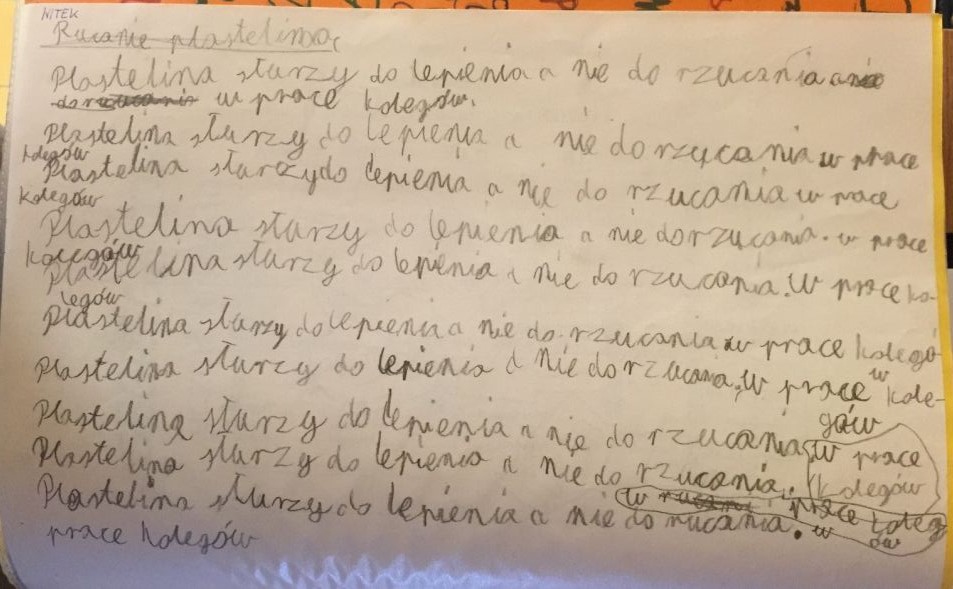 WITEK
Rucanie plasteliną
Plastelina słurzy do lepienia a nie do rzucania a nie
do rzucanie w prace kolegów.
Plastelina słurzy do lepienia a nie do rzucania w prace
kolegów
Plastelina słurzy do lepienia a nie do rzucania w prace
kolegów
Plastelina słurzy do lepienia a nie do rzucania. w prace
kolegów
Plastelina słurzy do lepienia a nie do rzucania. w prace ko-
legów
Plastelina słurzy do lepienia a nie do rzucania w prace kolegó
w
Plastelina słurzy do lepienia a nie do rzucania. w prace kole-
gów
Plastelina słurzy do lepienia a nie do rzucania w prace
kolegów
Plastelina słurzy do lepienia a nie do rzucania. w prace koleg
ów
Plastelina słurzy do lepienia a nie do rucania. w
prace kolegów